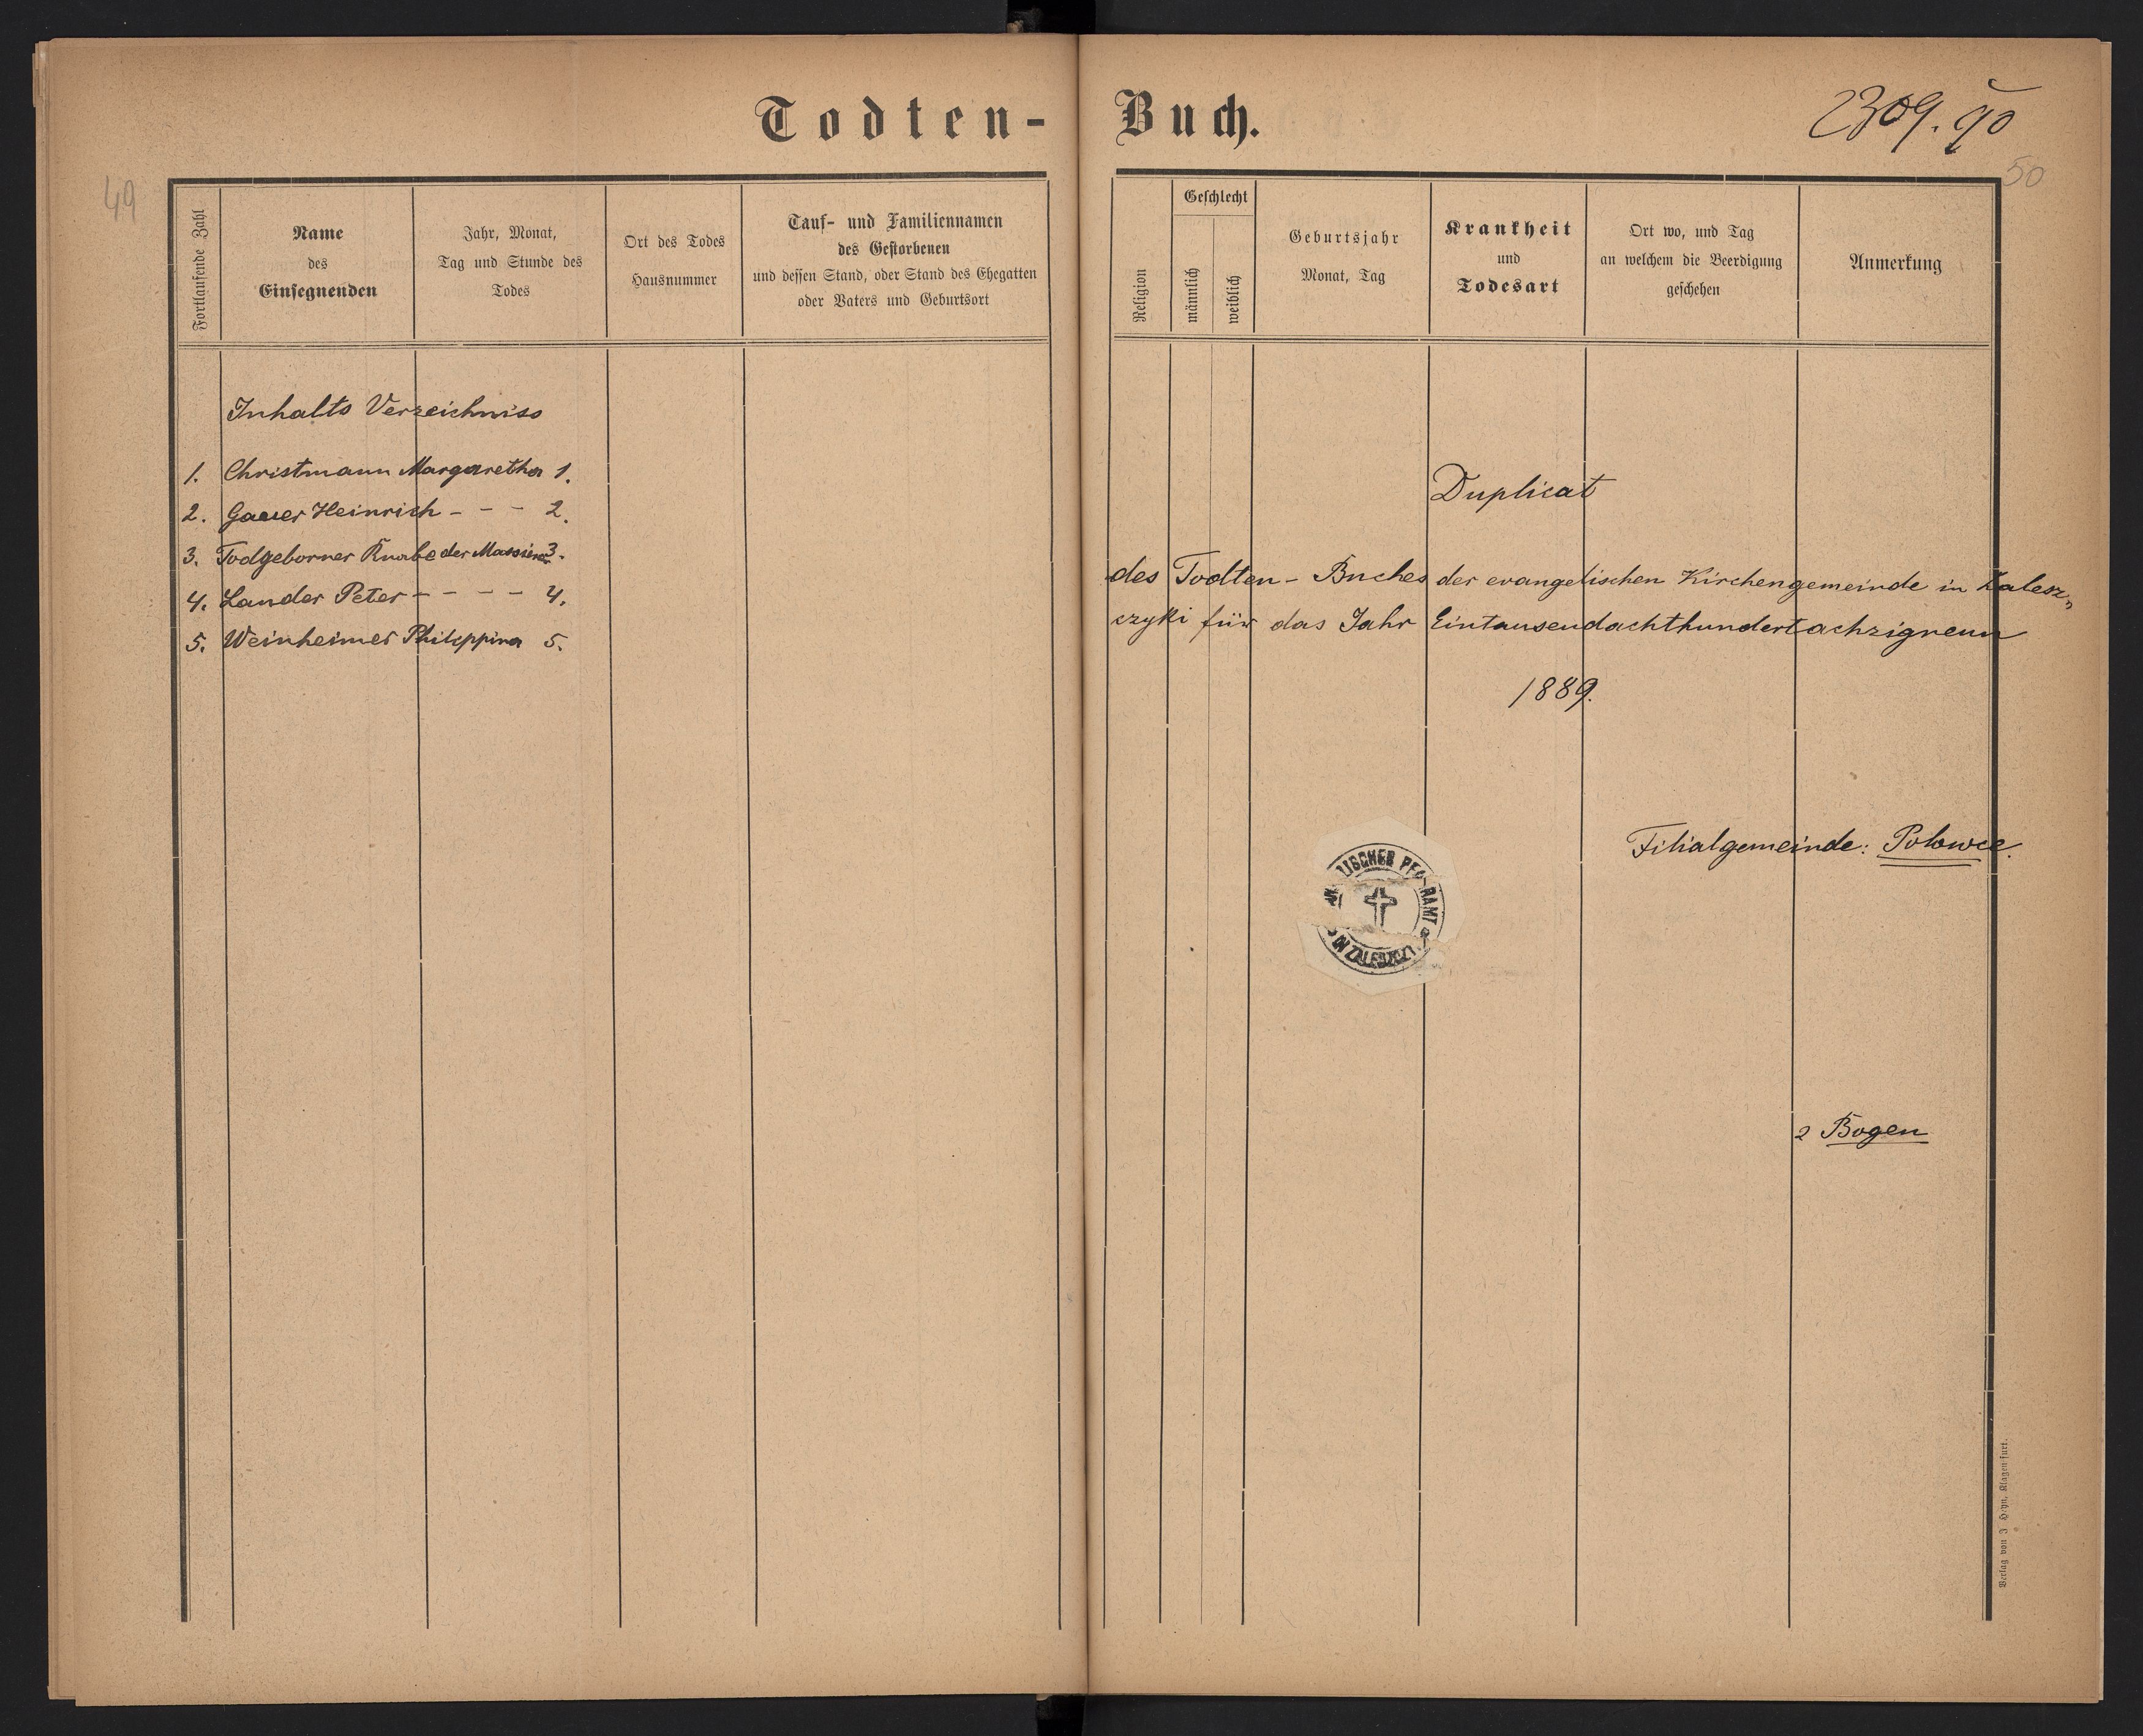 Todten-Buch.
2309. 90
49
50
Fortlaufende Zahl
Name
des
Einsegnenden
Jahr, Monat,
Tag und Stunde des
Todes
Ort des Todes
Hausnummer
Tauf- und Familiennamen
des Gestorbenen
und dessen Stand, oder Stand des Ehegatten
oder Vaters und Geburtsort
Religion
Geschlecht
männlich
weiblich
Geburtsjahr
Monat, Tag
Krankheit
und
Todesart
Ort wo, und Tag
an welchem die Beerdigung
geschehen
Anmerkung
Inhalts Verzeichniss
1. Christmann Margaretha 1.
2. Gauer Heinrich - - - 2.
3. Todgeborner Knabe der 3.
4. Lander Peter - - - - 4.
5. Weinheimer Philippina 5.
Duplicat
des Todten-Buches der evangelischen Kirchengemeinde in Zalesz„
czyki für das Jahr Eintausendachthundertachzigneun
1889.
Filialgemeinde: Polowce.
LISCHES PFARRAMT
IN ZALESZCZY
2 Bogen
Verlag von J Heyn, Klagenfurt.